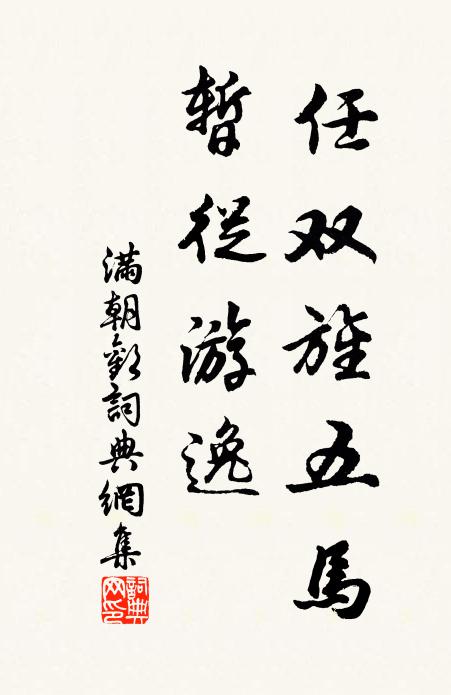 任双旌五馬
暫從游逸
滿朝歡詞典網集
詞典网印